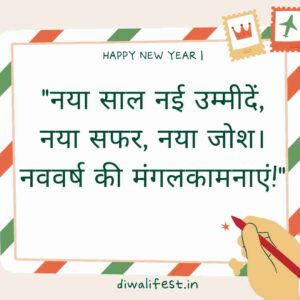 HAPPY NEW YEAR |
"नया साल नई उम्मीदें,
नया सफर, नया जोश।
नववर्ष की मंगलकामनाएं!"
diwalifest.in